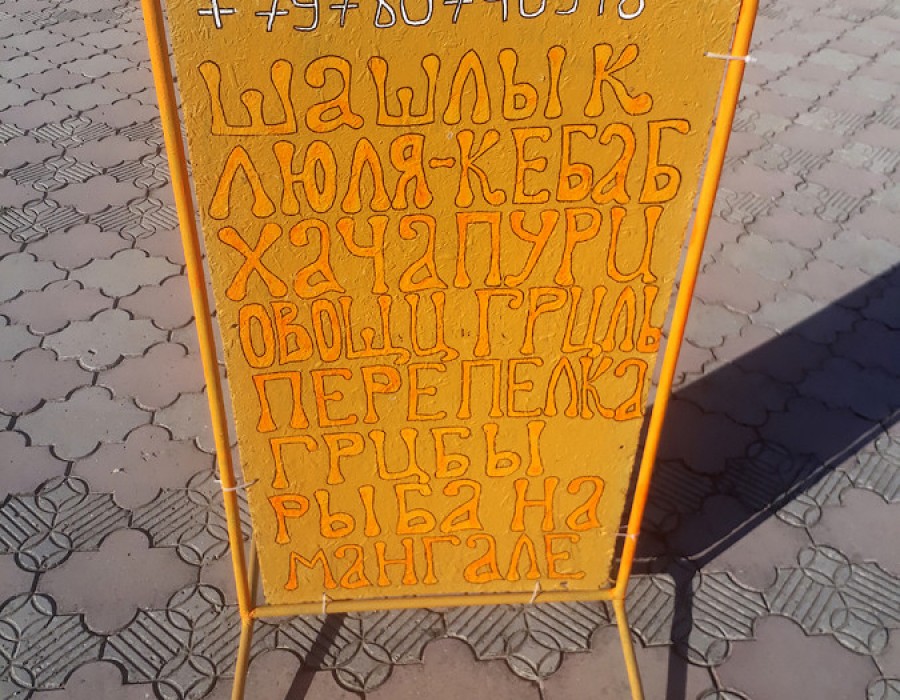 шашлык
люля-кебаб
хачапури
овощи гриль
перепелка
грибы
рыба на
мангале